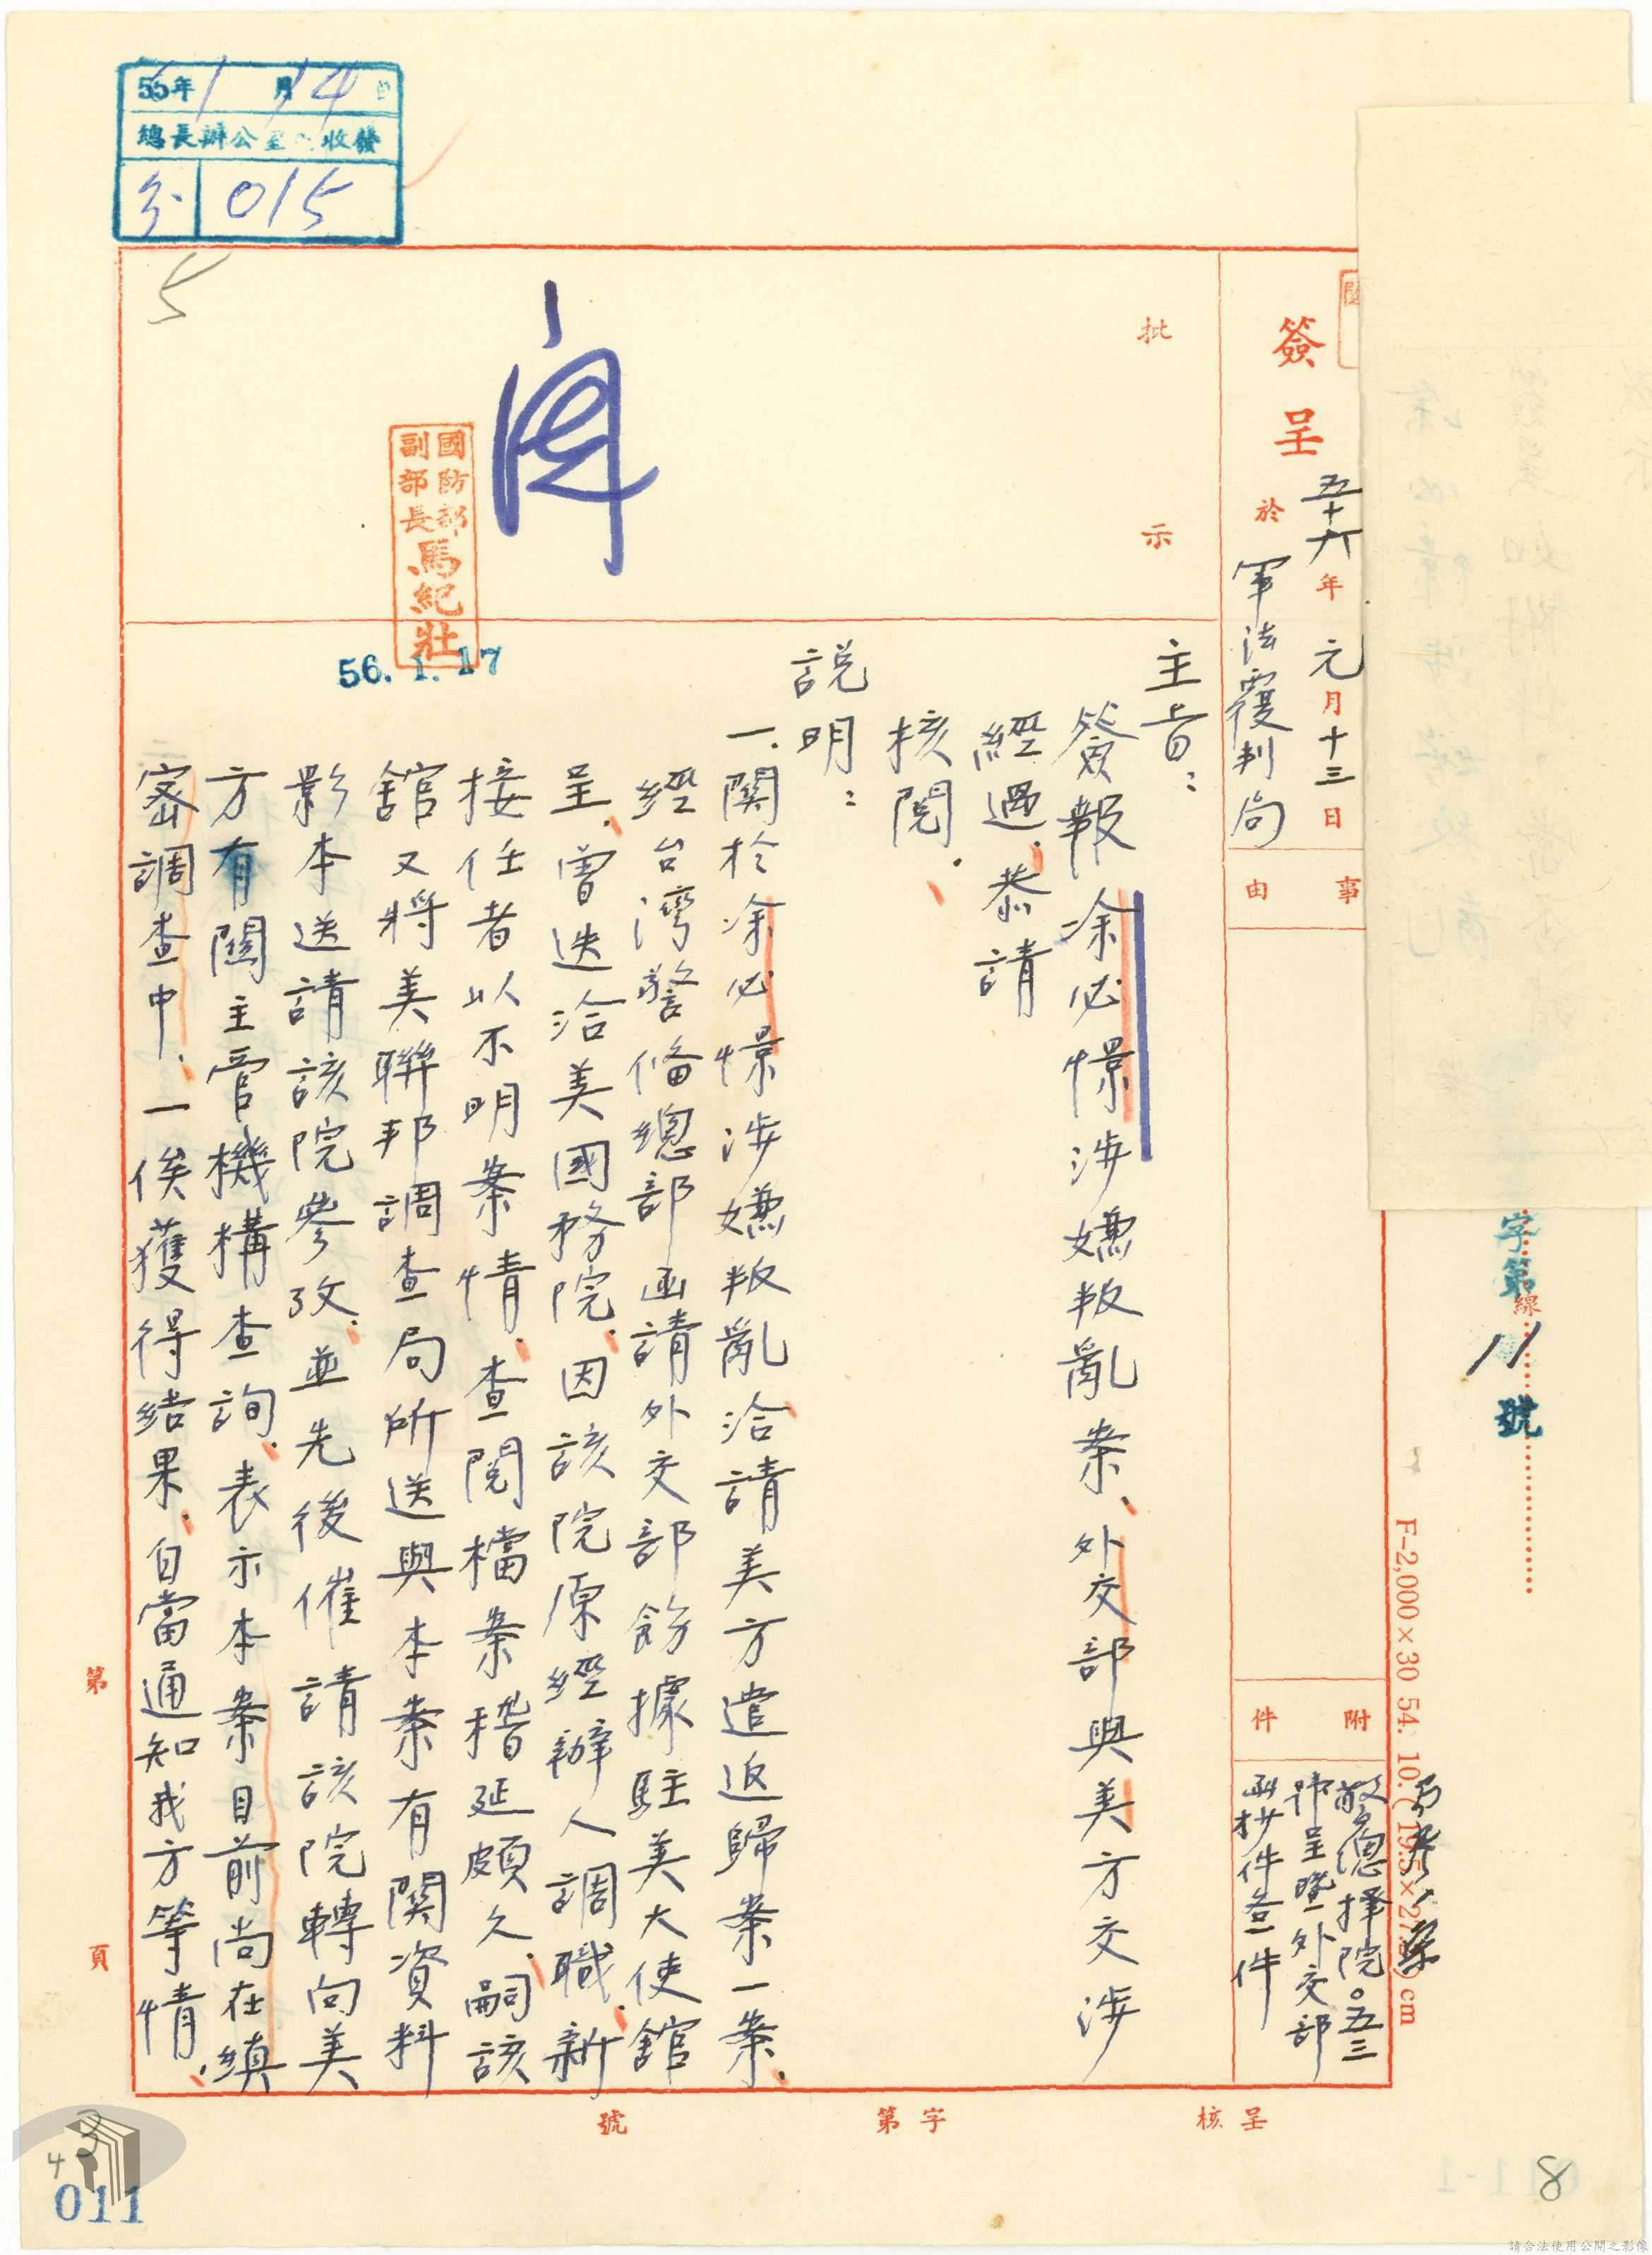 56年1月14日
總長辦公室 收發
015
5
簽呈
五十六年元月十三日
於軍法覆判局
事由
附件
警總择院○五三
函抄件叁件
字第11號
線
F-2,000×30 54. 10. (19.5×27.5)cm
批示
國防部
副部長
馬紀壯
56. 1. 17
主旨：
簽報涂必憬涉嫌叛亂案、外交部與美方交涉
經過、恭請
核閱、
說明：
一、關於涂必憬涉嫌叛亂洽請美方遣返歸案一案、
經台灣警備總部函請外交部飭據駐美大使館
呈、曾迭洽美國務院、因該院原經辦人調職、新
接任者以不明案情、查閱檔案稽延頗久、嗣該
館又將美聯邦調查局所送與本案有關資料
影本送請該院參攷、並先後催請該院轉向美
方有關主管機構查詢、表示本案目前尚在縝
密調查中、一俟獲得結果、自當通知我方等情、
第 頁
呈核 字第 號
3
4
011
8
請合法使用公開之影像